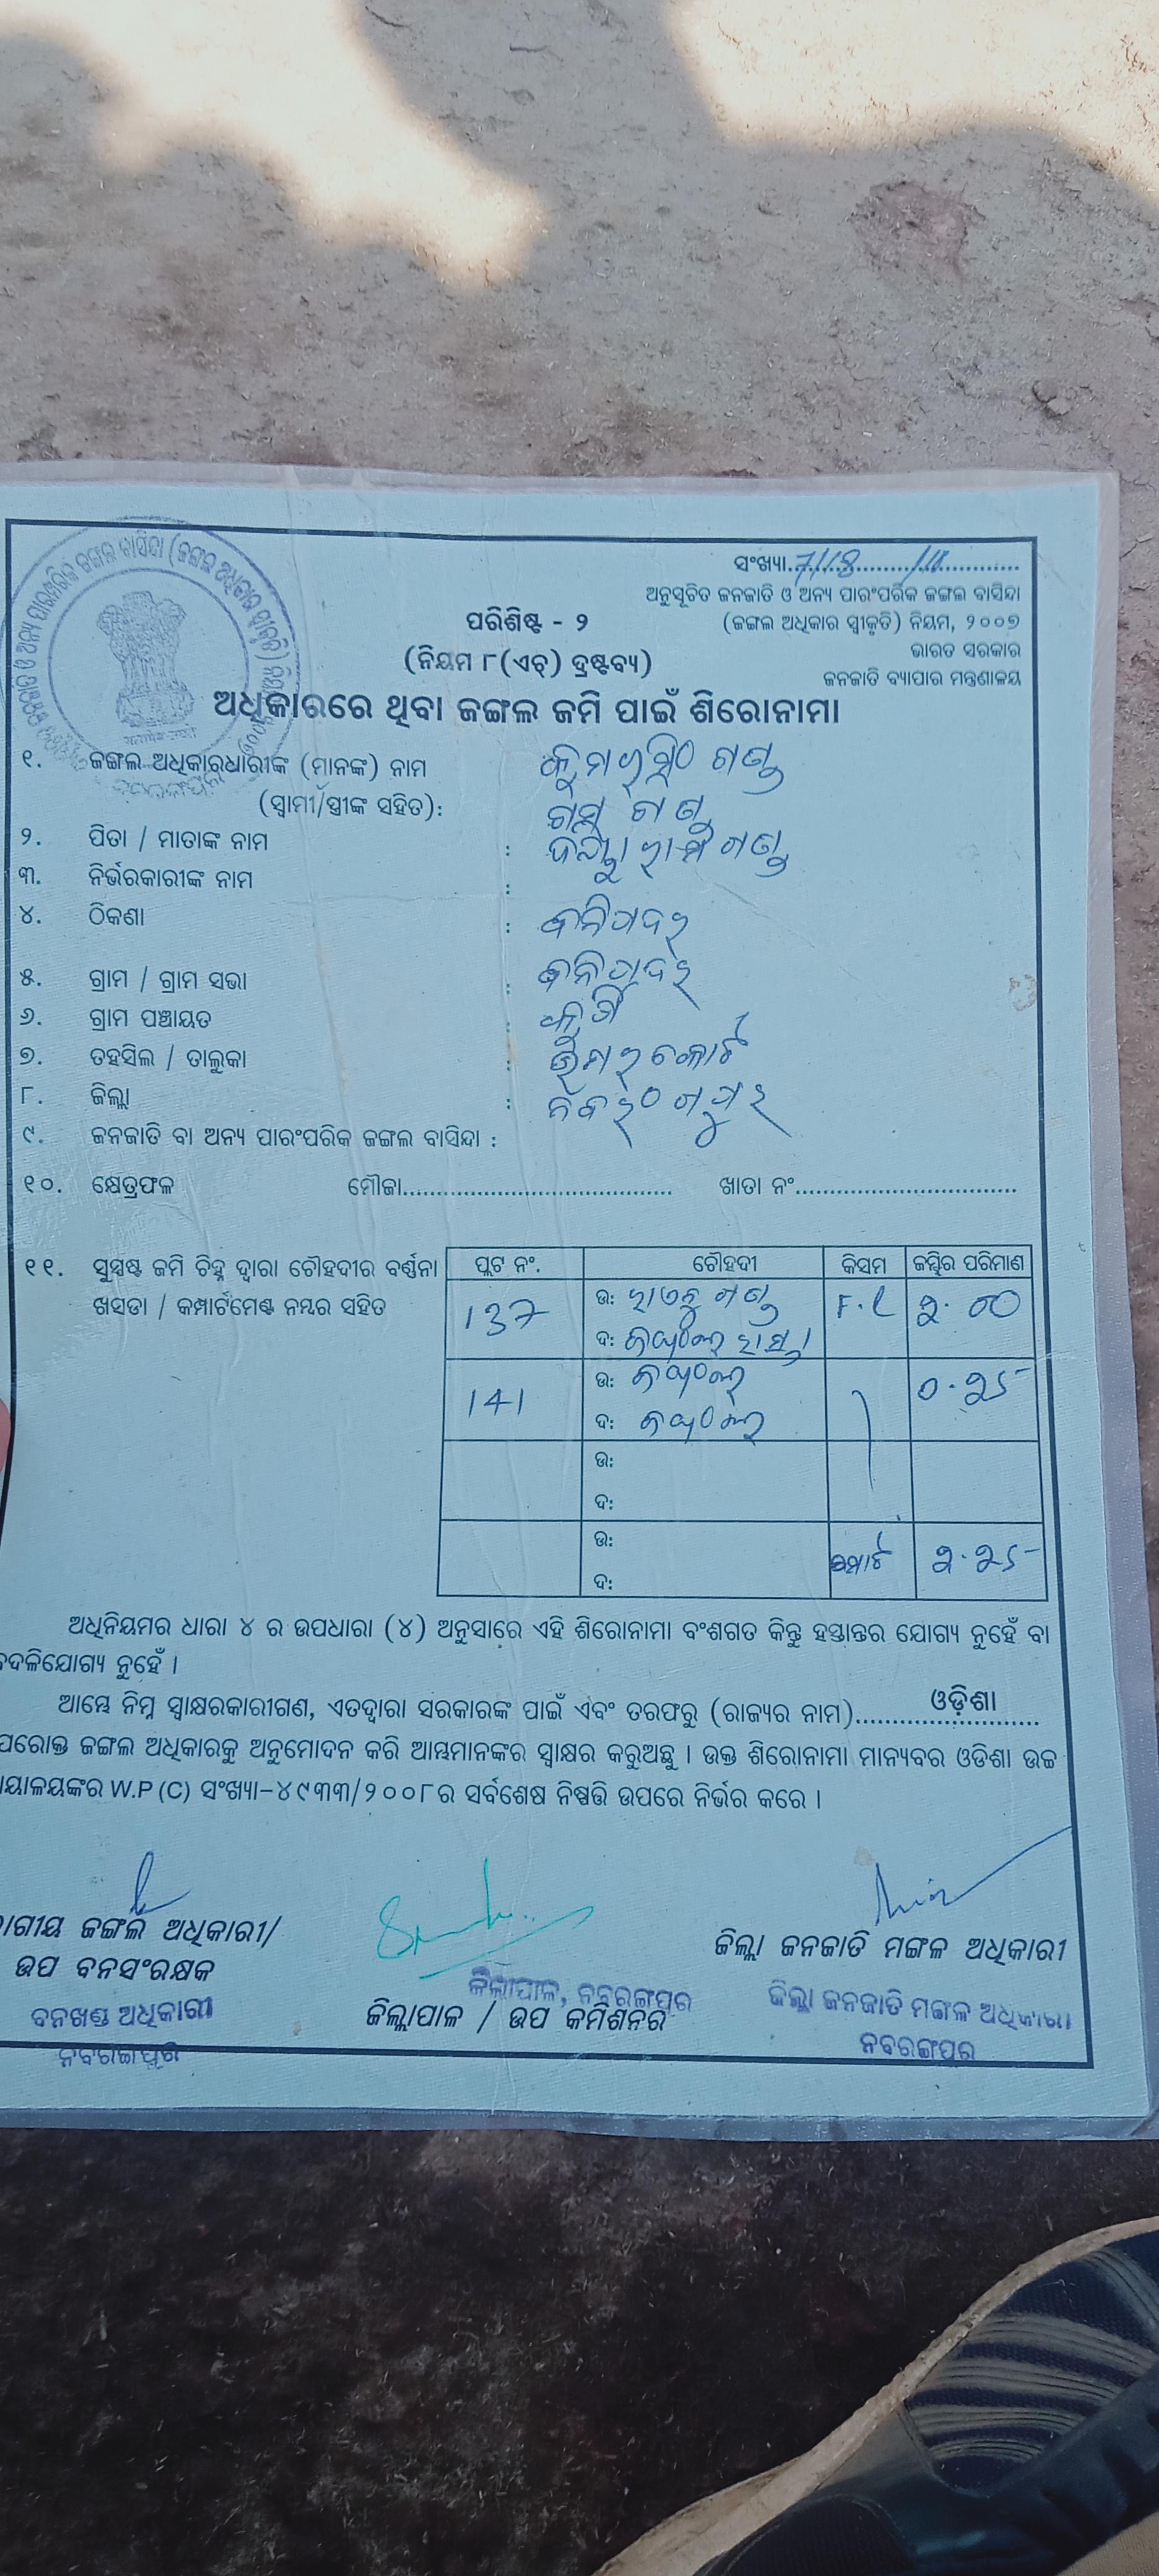 ସଂଖ୍ୟା 7118
ଅନୁସୂଚିତ ଜନଜାତି ଓ ଅନ୍ୟ ପାରଂପରିକ ଜଙ୍ଗଲ ବାସିନ୍ଦା
(ଜଙ୍ଗଲ ଅଧିକାର ସ୍ୱୀକୃତି) ନିୟମ, ୨୦୦୭
ଭାରତ ସରକାର
ଜନଜାତି ବ୍ୟାପାର ମନ୍ତ୍ରଣାଳୟ
ପରିଶିଷ୍ଟ - ୨
(ନିୟମ ୮(ଏଚ୍) ଦ୍ରଷ୍ଟବ୍ୟ)
ଅଧିକାରରେ ଥିବା ଜଙ୍ଗଲ ଜମି ପାଇଁ ଶିରୋନାମା
୧. ଜଙ୍ଗଲ ଅଧିକାରଧାରୀଙ୍କ (ମାନଙ୍କ) ନାମ ଗଣ୍ଡ
(ସ୍ୱାମୀ/ସ୍ତ୍ରୀଙ୍କ ସହିତ):
୨. ପିତା / ମାତାଙ୍କ ନାମ :
୩. ନିର୍ଭରକାରୀଙ୍କ ନାମ :
୪. ଠିକଣା :
୫. ଗ୍ରାମ / ଗ୍ରାମ ସଭା :
୬. ଗ୍ରାମ ପଞ୍ଚାୟତ :
୭. ତହସିଲ / ତାଲୁକା : ଉମରକୋଟ
୮. ଜିଲ୍ଲା : ନବରଂଗପୁର
୯. ଜନଜାତି ବା ଅନ୍ୟ ପାରଂପରିକ ଜଙ୍ଗଲ ବାସିନ୍ଦା :
୧୦. କ୍ଷେତ୍ରଫଳ ମୌଜା.................... ଖାତା ନଂ....................
୧୧. ସୁସ୍ପଷ୍ଟ ଜମି ଚିହ୍ନ ଦ୍ୱାରା ଚୌହଦୀର ବର୍ଣ୍ଣନା
ଖସଡା / କମ୍ପାର୍ଟମେଣ୍ଟ ନମ୍ବର ସହିତ
ପ୍ଲଟ ନଂ. ଚୌହଦୀ କିସମ ଜମିର ପରିମାଣ
137 ଉ: ଗଣ୍ଡ F.L ୨.୦୦
ଦ: ଜଙ୍ଗଲ ରାସ୍ତା
141 ଉ: ଜଙ୍ଗଲ ୦.୨୫
ଦ: ଜଙ୍ଗଲ
ଉ:
ଦ:
ଉ: ମୋଟ ୨.୨୫
ଦ:
ଅଧିନିୟମର ଧାରା ୪ ର ଉପଧାରା (୪) ଅନୁସାରେ ଏହି ଶିରୋନାମା ବଂଶଗତ କିନ୍ତୁ ହସ୍ତାନ୍ତର ଯୋଗ୍ୟ ନୁହେଁ ବା
ବଦଳିଯୋଗ୍ୟ ନୁହେଁ ।
ଆମ୍ଭେ ନିମ୍ନ ସ୍ୱାକ୍ଷରକାରୀଗଣ, ଏତଦ୍ୱାରା ସରକାରଙ୍କ ପାଇଁ ଏବଂ ତରଫରୁ (ରାଜ୍ୟର ନାମ).......ଓଡ଼ିଶା.......
ପରୋକ୍ତ ଜଙ୍ଗଲ ଅଧିକାରକୁ ଅନୁମୋଦନ କରି ଆମ୍ଭମାନଙ୍କର ସ୍ୱାକ୍ଷର କରୁଅଛୁ । ଉକ୍ତ ଶିରୋନାମା ମାନ୍ୟବର ଓଡିଶା ଉଚ୍ଚ
ୟାଳୟଙ୍କର W.P (C) ସଂଖ୍ୟା-୪୯୩୩/୨୦୦୮ର ସର୍ବଶେଷ ନିଷ୍ପତ୍ତି ଉପରେ ନିର୍ଭର କରେ ।
ଭାଗୀୟ ଜଙ୍ଗଲ ଅଧିକାରୀ/
ଉପ ବନସଂରକ୍ଷକ
ବନଖଣ୍ଡ ଅଧିକାରୀ
ନବରଙ୍ଗପୁର
ଜିଲ୍ଲାପାଳ, ନବରଙ୍ଗପୁର
ଜିଲ୍ଲାପାଳ / ଉପ କମିଶନର
ଜିଲ୍ଲା ଜନଜାତି ମଙ୍ଗଳ ଅଧିକାରୀ
ଜିଲ୍ଲା ଜନଜାତି ମଙ୍ଗଳ ଅଧିକାରୀ
ନବରଙ୍ଗପୁର